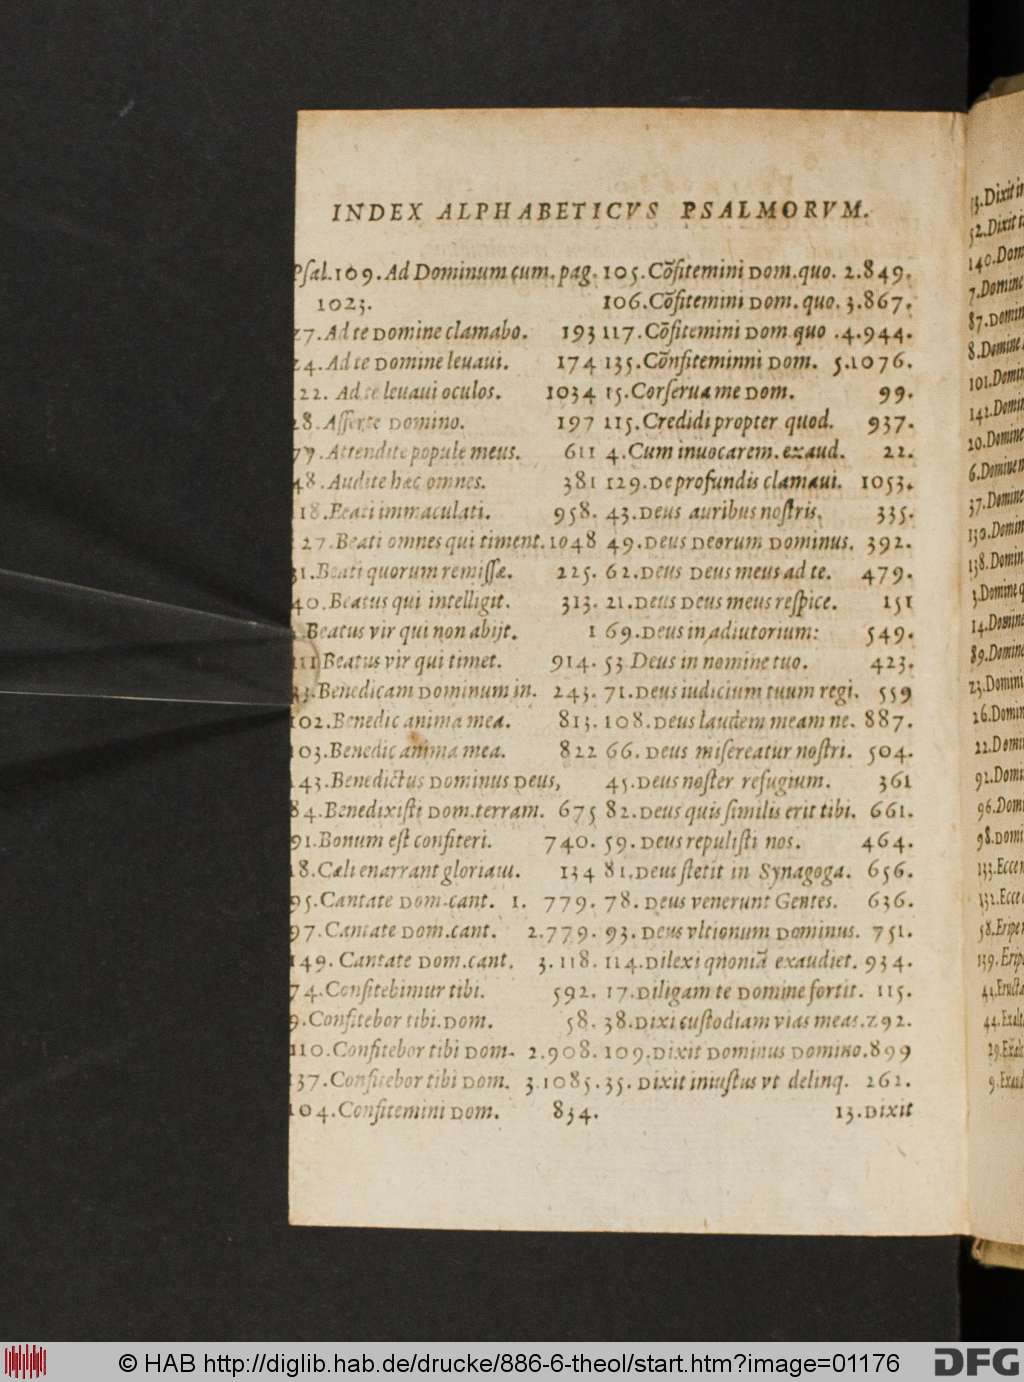 INDEX ALPHABETICVS PSALMORVM.
Psal.109. Ad Dominum cum. pag.
1023.
27. Ad te Domine clamabo. 193
24. Ad te Domine leuaui. 174
122. Ad te leuaui oculos. 1034
28. Afferte Domino. 197
77. Attendite popule meus. 611
48. Audite hæc omnes. 381
118. Beati immaculati. 958.
127. Beati omnes qui timent. 1048
31. Beati quorum remissæ. 225.
40. Beatus qui intelligit. 313.
Beatus vir qui non abijt. 1
111 Beatus vir qui timet. 914.
33. Benedicam Dominum in. 243.
102. Benedic anima mea. 813.
103. Benedic anima mea. 822
143. Benedictus Dominus Deus,
84. Benedixisti Dom.terram. 675
91. Bonum est confiteri. 740.
18. Cæli enarrant gloriam. 134
95. Cantate Dom.cant. 1. 779.
97. Cantate Dom.cant. 2.779.
149. Cantate Dom.cant. 3.118.
74. Confitebimur tibi. 592.
9. Confitebor tibi.Dom. 58.
110. Confitebor tibi Dom. 2.908.
137. Confitebor tibi Dom. 3.1085.
104. Confitemini Dom. 834.
105. Cõfitemini Dom.quo. 2.849.
106. Cõfitemini Dom. quo. 3.867.
117. Cõfitemini Dom quo .4.944.
135. Cõnfiteminni Dom. 5.1076.
15. Corserua me Dom. 99.
115. Credidi propter quod. 937.
4. Cum inuocarem. exaud. 22.
129. De profundis clamaui. 1053.
43. Deus auribus nostris. 335.
49. Deus Deorum Dominus. 392.
62. Deus Deus meus ad te. 479.
21. Deus Deus meus respice. 151
69. Deus in adiutorium: 549.
53. Deus in nomine tuo. 423.
71. Deus iudicium tuum regi. 559
108. Deus laudem meam ne. 887.
66. Deus misereatur nostri. 504.
45. Deus noster refugium. 361
82. Deus quis similis erit tibi. 661.
59. Deus repulisti nos. 464.
81. Deus stetit in Synagoga. 656.
78. Deus venerunt Gentes. 636.
93. Deus vltionum Dominus. 751.
114. Dilexi qnoniã exaudiet. 934.
17. Diligam te Domine fortit. 115.
38. Dixi custodiam vias meas. 292.
109. Dixit Dominus Domino. 899
35. Dixit iniustus vt delinq. 262.
13. Dixit
13. Dixit in
52. Dixit i
140. Dom
7. Domine
87. Domin
8. Domine
101. Domin
142. Domin
20. Domine
6. Domine n
37. Domine
130. Domin
138. Domin
3. Domine q
14. Domine
89. Domine
23. Domini
26. Domin
22. Domi
92. Domi
96. Domi
98. Domi
133. Ecce n
132. Ecce
58. Eripe
139. Eripe
44. Exalt
29. Exalt
9. Exaud
© HAB http://diglib.hab.de/drucke/886-6-theol/start.htm?image=01176
DFG